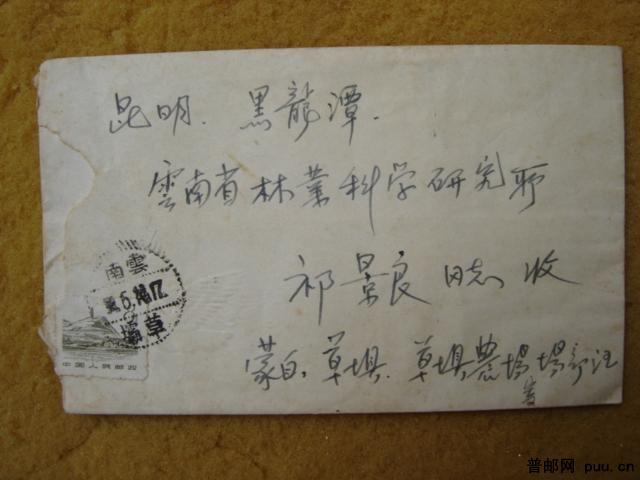 昆明. 黑龍潭.
雲南省林業科学研究所
祁景良 同志 收
蒙自. 草垻. 草垻農場場部汪
雲南
草壩
中国人民邮政
普邮网 puu.cn